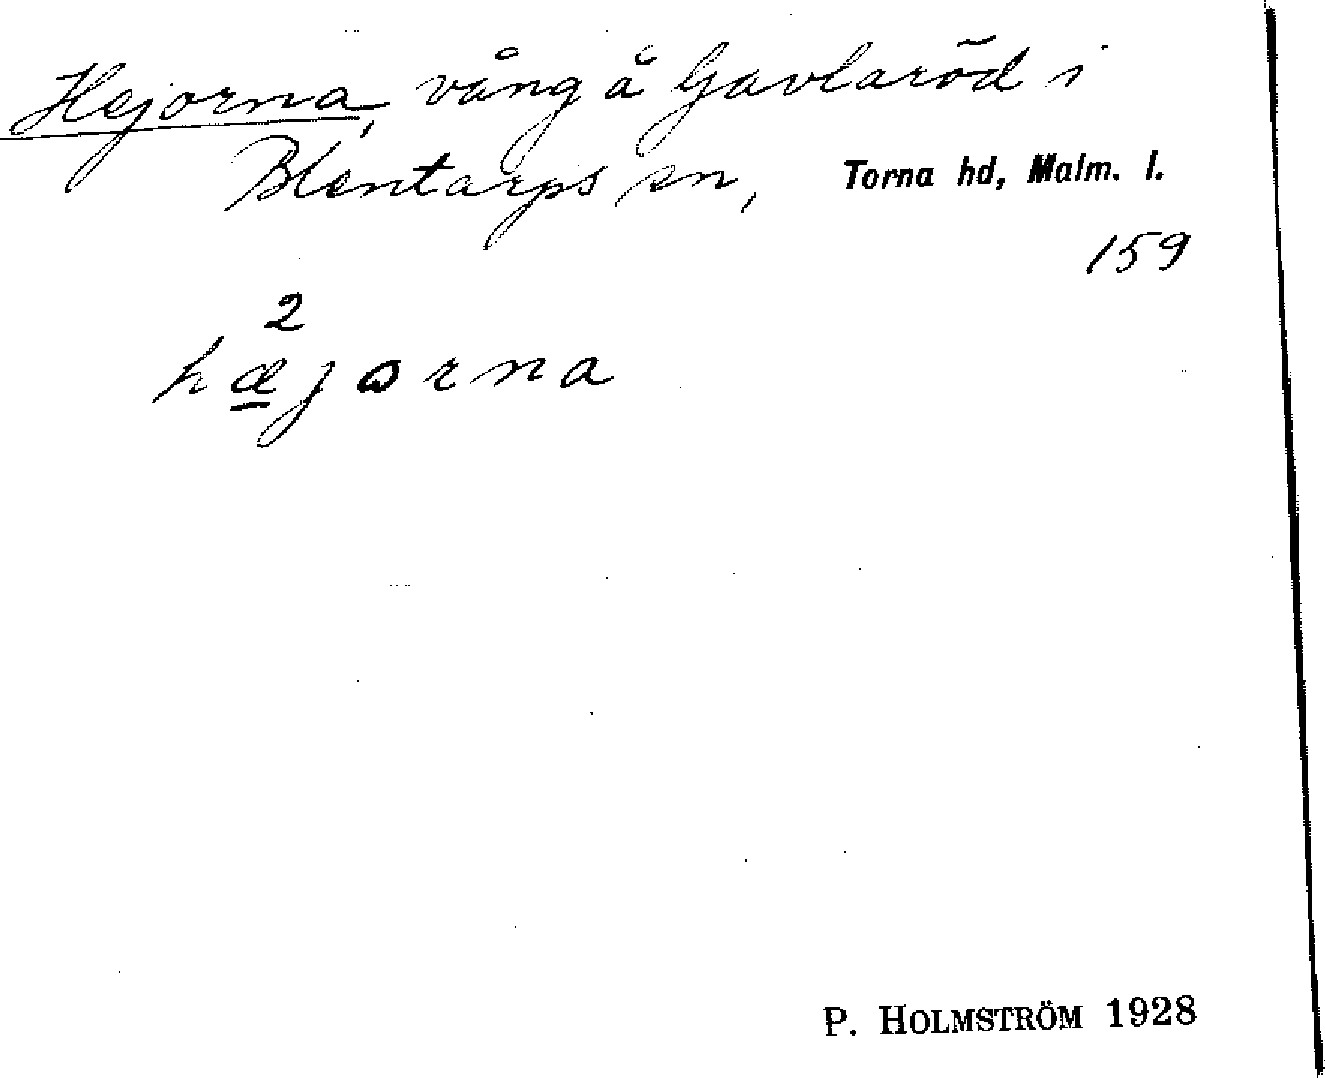 Hejorna, vång å Gavlaröd i
Blentarps sn, Torna hd, Malm. l.
159
2
hæjorna
P. HOLMSTRÖM 1928